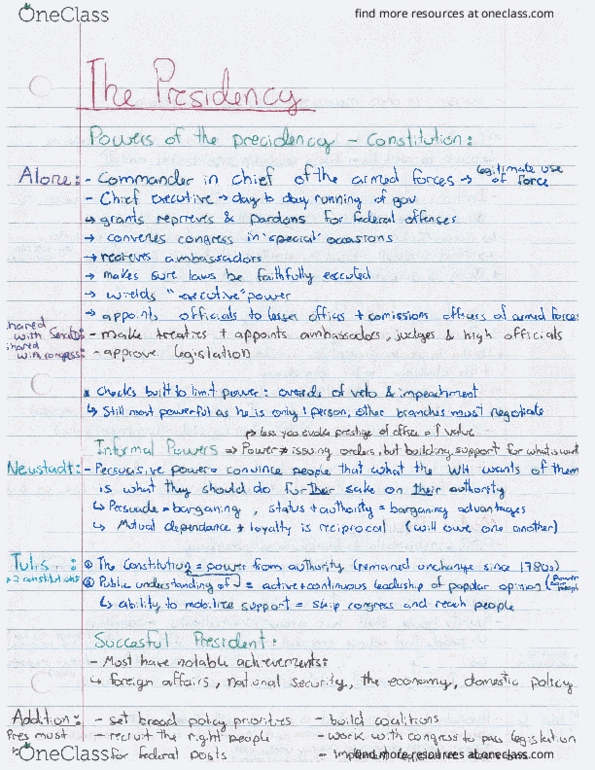 OneClass
find more resources at oneclass.com
The Presidency
Powers of the precidency - Constitution:
Alone: - Commander in chief of the armed forces → legitimate use of force
- Chief executive → day to day running of gov
→ grants reprieves & pardons for federal offenses
→ convenes congress in 'special' occasions
→ recieves ambassadors
→ makes sure laws be faithfully executed
→ wields "executive" power
→ appoints officials to lesser offices + comissions officers of armed forces
shared with Senate: - make treaties + appoints ambassadors, judges & high officials
shared with congress: - approve legislation
* Checks built to limit power: override of veto & impeachment
↳ Still most powerful as he is only 1 person, other branches must negotiate
↳ less you evoke prestige of office = ↑ value
Informal Powers ⇒ Power ≠ issuing orders, but building support for what is want
Neustadt: - Persuasive power = convince people that what the WH wants of them
is what they should do for their sake on their authority
↳ Persuade = barganing, status + authority = barganing advantages
↳ Mutual dependance + loyalty is reciprocal (will owe one another)
Tulis: ① The Constitution = power from authority (remained unchange since 1780s)
→ 2 constitutions ② Public understanding of = active + continuous leadership of popular opinion (Power people
↳ ability to mobilize support = skip congress and reach people
Succesful President:
- Most have notable achievements:
↳ foreign affairs, national security, the economy, domestic policy
Addition: - set broad policy priorities - build coalitions
Pres must - recruit the right people - work with congress to pass legislation
for federal posts
OneClass
find more resources at oneclass.com